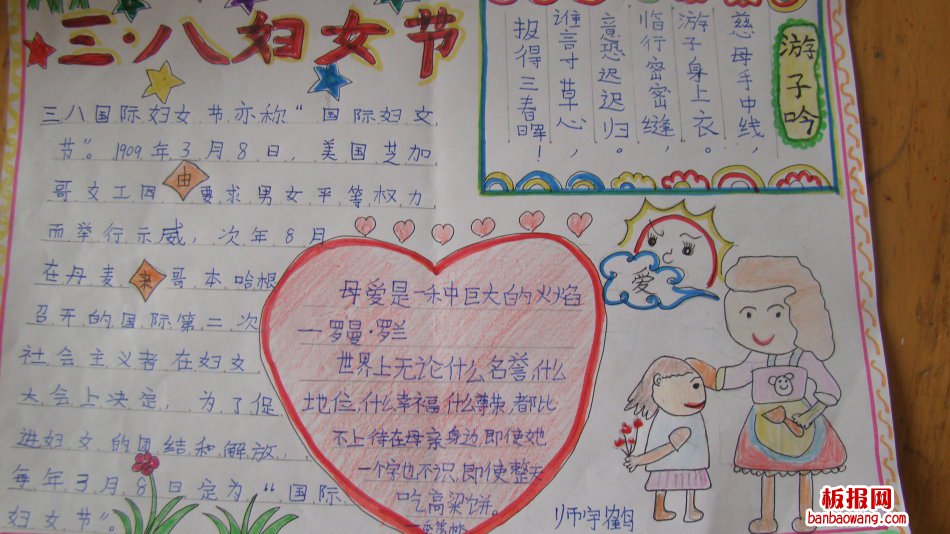 三·八妇女节
三八国际妇女节亦称“国际妇女
节”。1909年3月8日，美国芝加
哥女工因要求男女平等权力
而举行示威，次年8月
在丹麦哥本哈根
召开的国际第二次
社会主义者在妇女
大会上决定，为了促
进妇女的团结和解放，
每年3月8日定为“国际
妇女节”。
由
来
游子吟
慈母手中线，
游子身上衣。
临行密密缝，
意恐迟迟归。
谁言寸草心，
报得三春晖！
母爱是一种巨大的火焰
—罗曼·罗兰
世界上无论什么名誉，什么
地位，什么幸福，什么尊荣，都比
不上待在母亲身边，即使她
一个字也不识，即使整天
吃高梁饼。
爱
师宇鹤
板报网
banbaowang.com